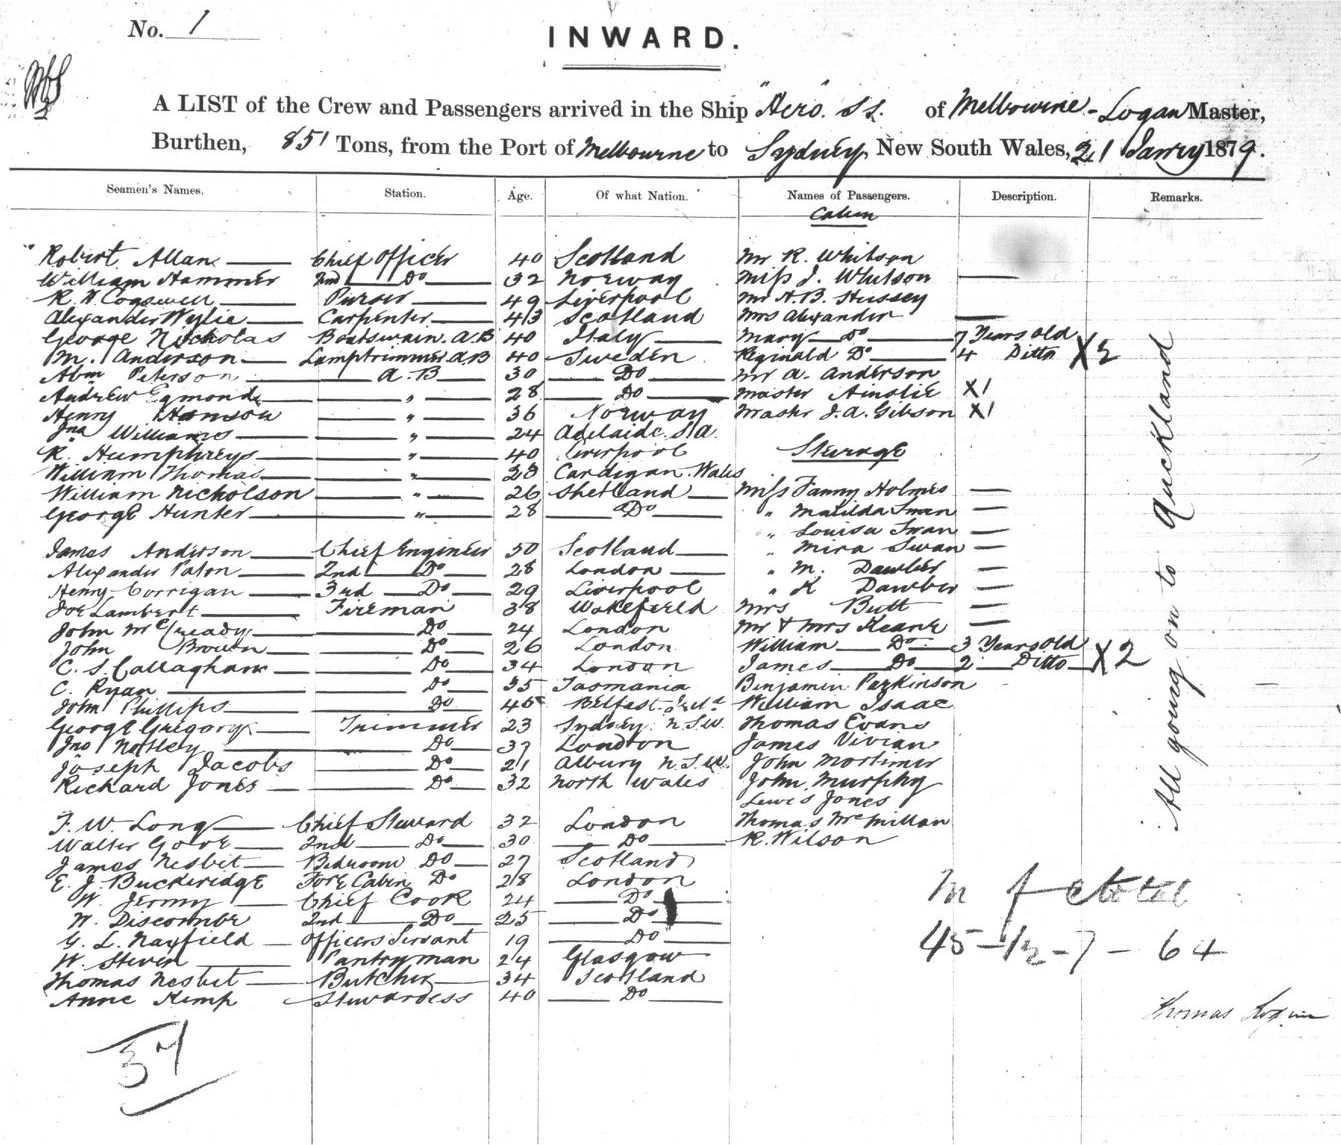 No. 1
INWARD.
A LIST of the Crew and Passengers arrived in the Ship "Hero" SS. of Melbourne - Logan Master,
Burthen, 851 Tons, from the Port of Melbourne to Sydney, New South Wales, 21 Janry 1879.
Seamen's Names. Station. Age. Of what Nation. Names of Passengers. Description. Remarks.
Cabin
Robert Allan Chief Officer 40 Scotland Mr R. Whitson
William Hammer 2nd Do 32 Norway Miss J. Whitson
R. W Cogswell Purser 49 Liverpool Mr A.B. Hussey
Alexander Wylie Carpenter 43 Scotland Mrs Alexander
George Nicholas Boatswain. A.B 40 Italy Mary Do 7 Years old
M. Anderson Lamptrimmer A.B 40 Sweden Reginald Do 4 Ditto X2
Abm Peterson A.B 30 Do Mr A. Anderson
Andrew Egmond " 28 Do Master Ainslie X1
Henry Hanson " 36 Norway Master J.A. Gibson X1
Jno Williams " 24 Adelaide. S.A.
R. Humphreys " 40 Liverpool Steerage
William Thomas " 23 Cardigan. Wales
William Nicholson " 26 Shetland Miss Fanny Holmes
George Hunter " 28 Do " Matilda Swan
" Louisa Swan
James Anderson Chief Engineer 50 Scotland " Mira Swan
Alexander Paton 2nd Do 28 London " M. Dawber
Henry Corrigan 3rd Do 29 Liverpool " K Dawber
Joe Lambert Fireman 38 Wakefield Mrs Butt
John McCready Do 24 London Mr & Mrs Keane
John Brown Do 26 London William Do 3 Years old
C. S. Callaghan Do 34 London James Do 2 Ditto X2
C. Ryan Do 35 Tasmania Benjamin Parkinson
John Phillips Do 45 Belfast William Isaac
George Gregory Trimmer 23 Sydney. N.S.W. Thomas Evans
Jno Notley Do 37 London James Vivian
Joseph Jacobs Do 21 Albury N.S.W. John Mortimer
Richard Jones Do 32 North Wales John Murphy
Lewis Jones
F. W. Long Chief Steward 32 London Thomas McMillan
Walter Gove 2nd Do 30 Do R. Wilson
James Nesbit Bedroom Do 27 Scotland
E. J. Buckeridge Fore Cabin Do 28 London
W. Jermy Chief Cook 24 Do
W. Discombe 2nd Do 25 Do
G. L. Nayfield Officers Servant 19 Do
W. Steven Pantryman 24 Glasgow
Thomas Nesbit Butcher 34 Scotland
Anne Kemp Stewardess 40 Do
All going on to Auckland
M f c total
45-12-7-64
Thomas Logan
37